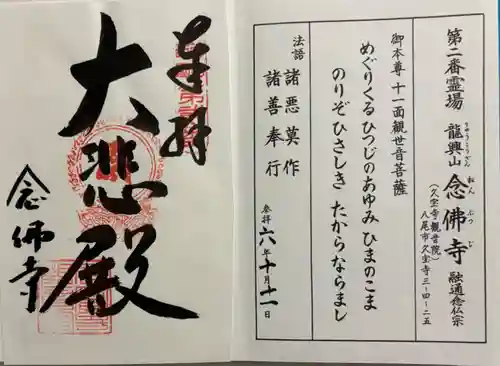 第二番霊場 龍興山 念佛寺 融通念仏宗
りゅうこうざん
ねんぶつじ
(久宝寺観音院)
八尾市久宝寺三-四-二五
御本尊 十一面観世音菩薩
めぐりくる ひつじのあゆみ ひまのこま
のりぞひさしき たからならまし
法語 諸悪莫作
諸善奉行
参拝 六年十月十一日
奉拝
大悲殿
念佛寺